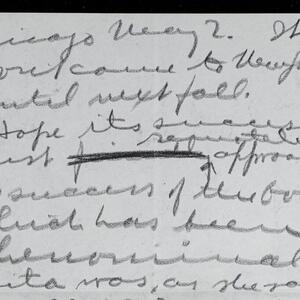 icago May 2. It
come to New
until next fall.
Hope its success
approa
success of the bo
which has been
phenominal
ita was, as she